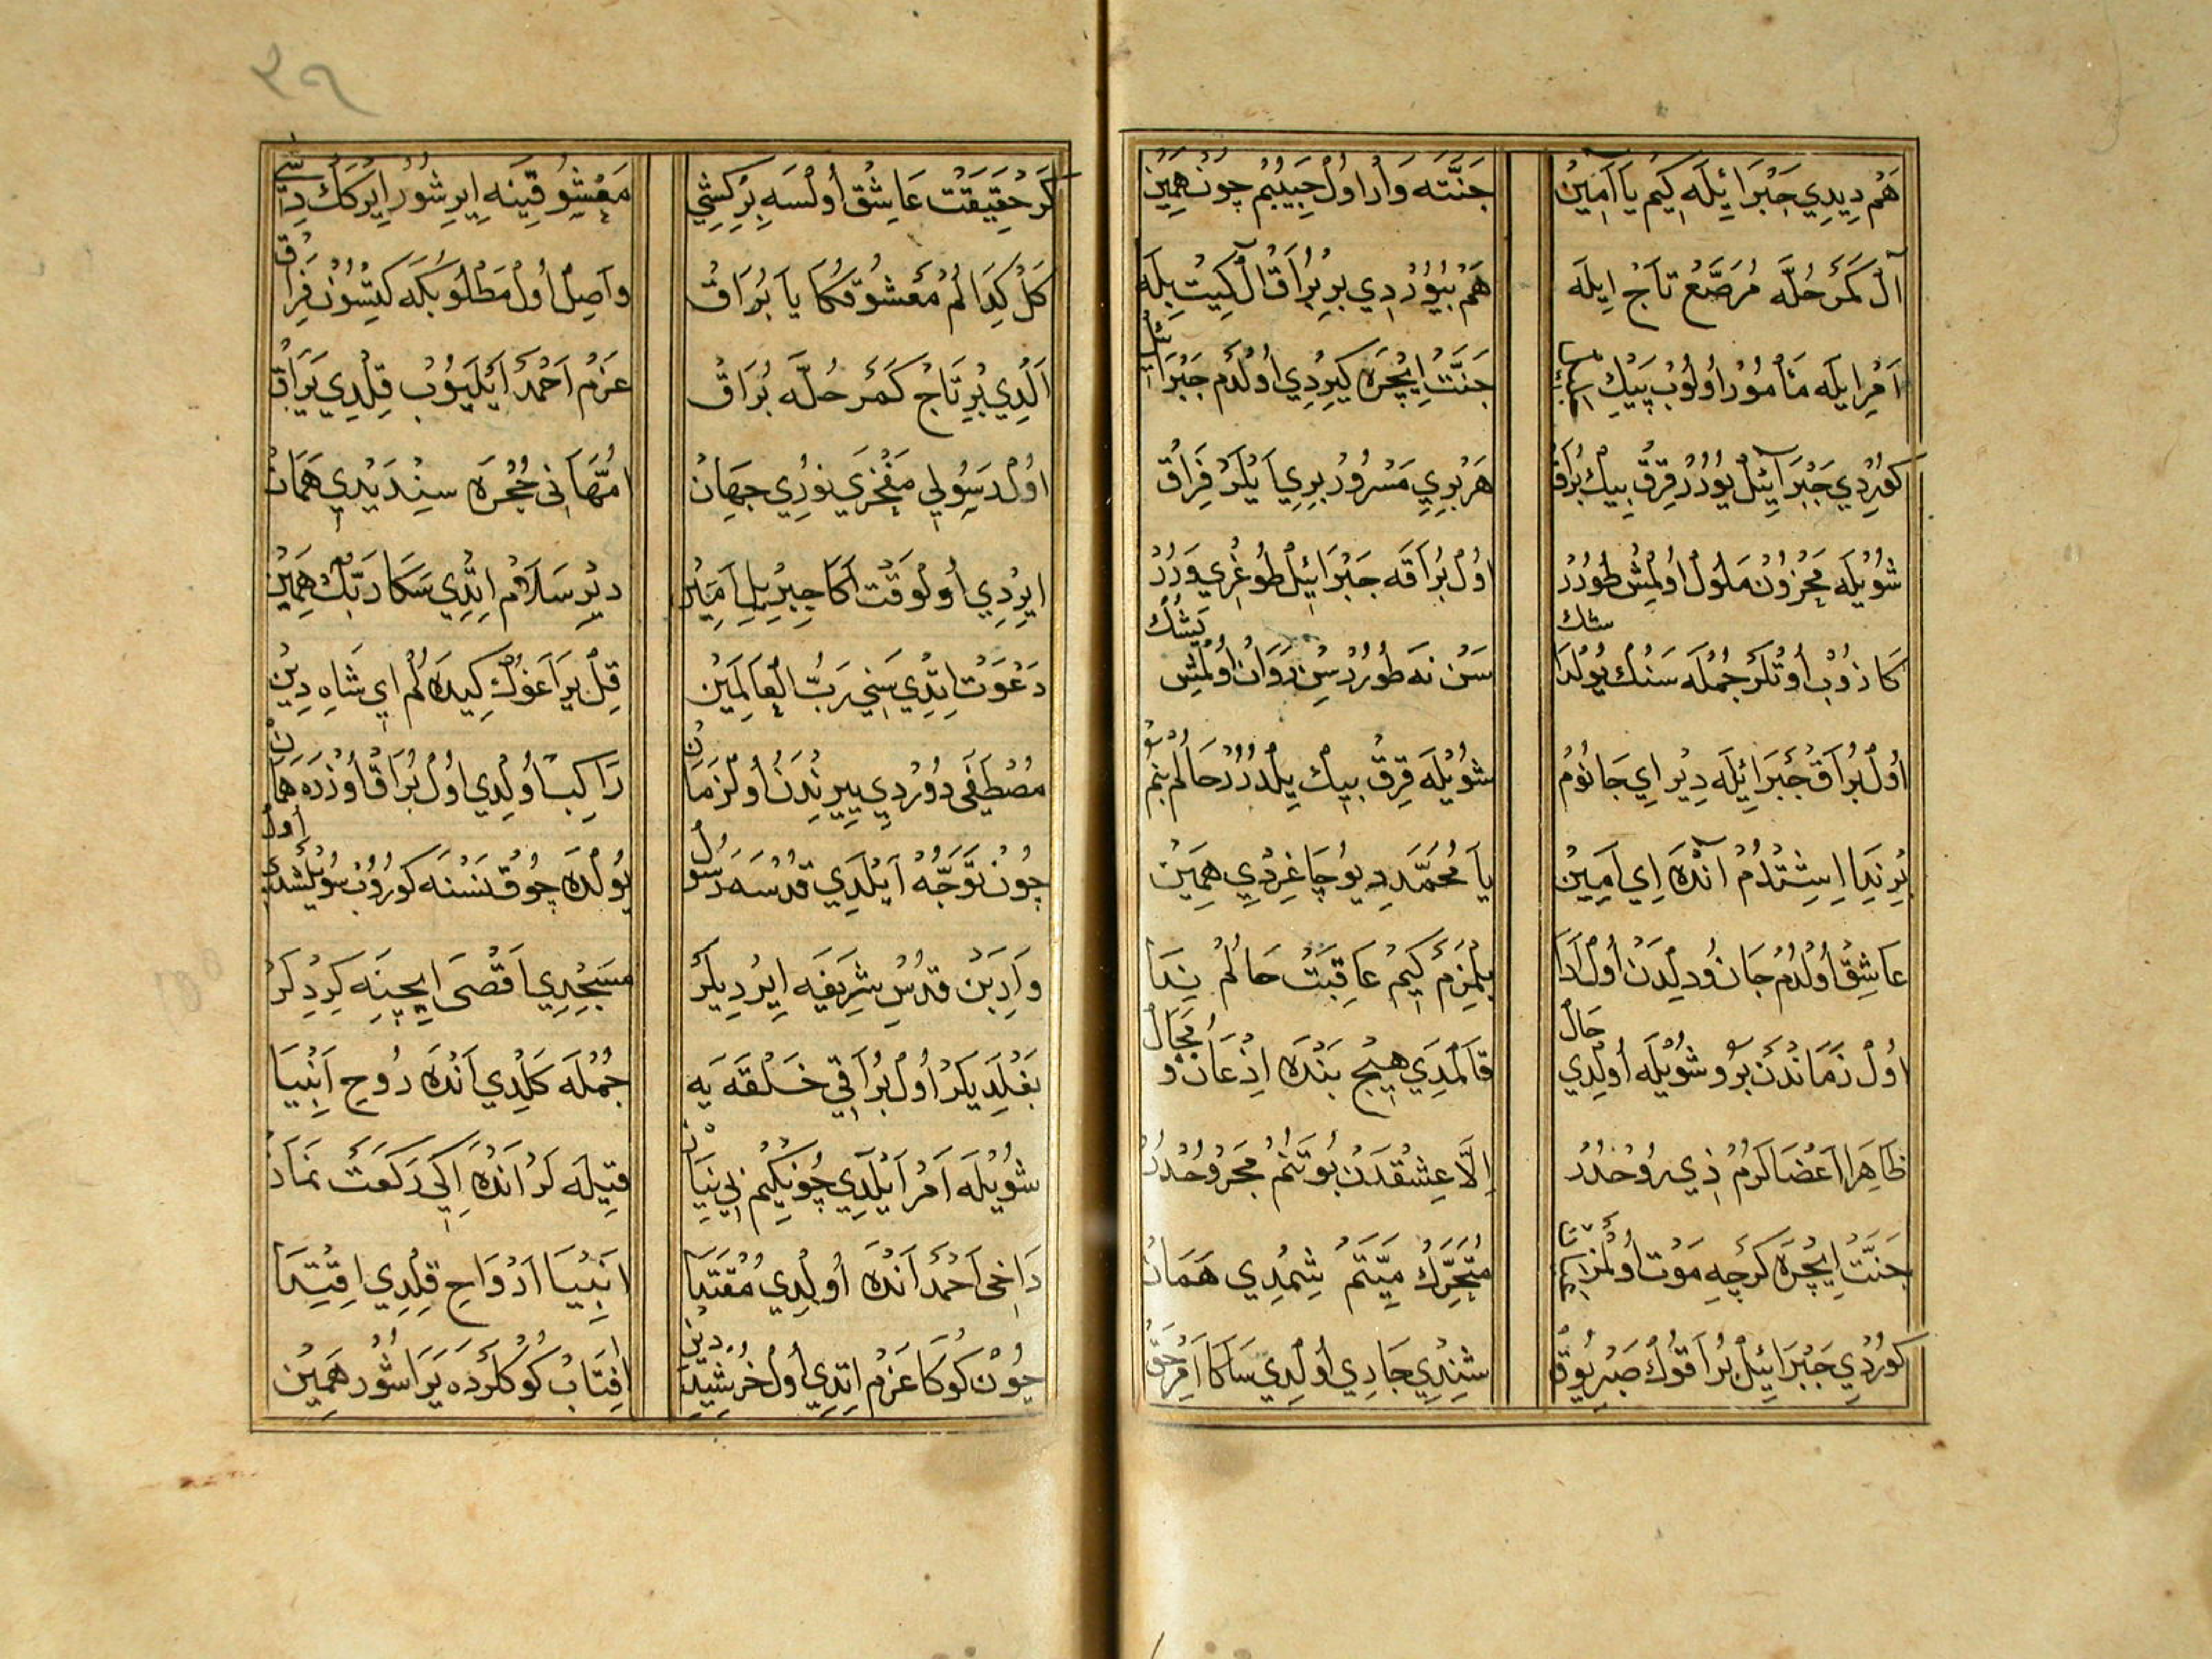 هَمْ دِيدِي جَبْرَائِلَه كِيمْ يَا اَمِينْ
جَنَّتَه وَارْ اوُلْ حَبِيبُمْ چُونْ هَمِينْ
آلْ كَمَرْ حُلَّه مُرَصَّعْ تَاجْ ايلَه
هَمْ بُيُوُرْدِي بِرْ بُرَاقْ اَلْ كِيتْ بِلَه
اَمْرِ ايلَه مَأْمُورْ اُولُوبْ پَيْكِ
جَنَّتْ اِيچْرَه كِيرْدِي اُولْدَمْ جَبْرَائِلْ
كوُرْدِي جَبْرَآئِلْ يُورُرْ قِرْقْ بِيكْ بُرَاقْ
هَرْ بِرِي مَسْرُورْ بِرِي اَيْلَرْ فِرَاقْ
شُويْلَه مَحْزُونْ مَلُولْ اُولْمِشْ طُورُرْ
اُولْ بُرَاقَه جَبْرَائِلْ طُوغْرِي وَرُرْ
كَاذُوبْ اُوتْلَرْ جُمْلَه سَنُكْ يُولْدَاشُكْ
سَنْ نَه طُورُرْسِنْ رَوَانْ اُولْمِشْ يَشُكْ
اُولْ بُرَاقْ جَبْرَائِلَه دِيرْ اِي جَانُومْ
شُويْلَه قِرْقْ بِيكْ يِلْدُرُرْ حَالُمْ بَنُمْ
بِرْ نِدَا اِشِتْدُمْ آنْدَه اِي اَمِينْ
يَا مُحَمَّدْ دِيُو چَاغِرْدِي هَمِينْ
عَاشِقْ اُولْدُمْ جَانُ و دِلْدَنْ اُولْ آدَا
بِلْمَزَمْ كِيمْ عَاقِبَتْ حَالُمْ نِدَا
اُولْ زَمَانْدَنْ بَرُو شُويْلَه اُولْدِي حَالْ
قَالْمَدِي هِيچْ بَنْدَه اِذْعَانُ و مَجَالْ
ظَاهِرَا اَعْضَالَرُمْ ذِي رُوحْدُرُرْ
اِلَّا عِشْقْدَنْ بُو تَنُمْ مَجْرُوحْدُرُرْ
جَنَّتْ اِيچْرَه كَرْچِه مَوْتْ اُولْمَزْ
مُتَحَرِّكْ مَيِّتَمْ شِمْدِي هَمَانْ
كوُرْدِي جَبْرَائِلْ بُرَاقُوكْ صَبْرِ يُوقْ
شِنْدِي جَادِي اُولْدِي سَاكَا اَمْرِ حَقْ
كَرْ حَقِيقَتْ عَاشِقْ اُولْسَه بِرْ كِشِي
مَعْشُوقِينَه اِيرِشُورْ اِيرْكَكْ دِشِي
كَلْ كِدَالُمْ مَعْشُوقُكَا يَا بُرَاقْ
وَاصِلْ اُولْ مَطْلُوبُكَه كِيتْسُونْ فِرَاقْ
اَلْدِي بُرْ تَاجْ كَمَرْ حُلَّه بُرَاقْ
عَزْمِ اَحْمَدْ اَيْلَيُوبْ قِلْدِي يَرَاقْ
اُولْ رَسُولِي مَفْخَرِي نُورِي جِهَانْ
اُمَّهَانِي حُجْرَه سِنْدَيْدِي هَمَانْ
اِيرْدِي اُولْوَقْتْ اَكَا جِبْرِيلِ اَمِينْ
دِيرْ سَلَامْ اِتْدِي سَكَا رَبُّكْ هَمِينْ
دَعْوَتْ اِتْدِي سَنِي رَبُّ الْعَالَمِينْ
قِلْ يَرَاغُوكْ كِيدَه لُمْ اِي شَاهِ دِينْ
مُصْطَفَى دُورْدِي يِيرِنْدَنْ اُولْزَمَانْ
رَاكِبْ اُولْدِي اُولْ بُرَاقْ اُوزْرَه هَمَانْ
چُونْ تَوَجُّه اَيْلَدِي قُدْسَه رَسُولْ
يُولْدَه چُوقْ نَسْنَه كوُرُوبْ سُويْلَشْدِي اُولْ
وَارِبَنْ قُدْسِ شَرِيفَه اِيرْدِيلَرْ
مَسْجِدِي اَقْصَى اِيچِنَه كِرْدِلَرْ
بَغْلَدِيلَرْ اُولْ بُرَاقِي حَلْقَه يَه
جُمْلَه كَلْدِي آنْدَه رُوحِ اَنْبِيَا
شُويْلَه اَمْرْ اَيْلَدِي چُونْكِيمْ بِي نِيَازْ
قِيلَه لَرْ آنْدَه اِكِي رَكْعَتْ نَمَازْ
دَاخِي اَحْمَدْ آنْدَه اُولْدِي مُقْتَدَا
اَنْبِيَا اَرْوَاحِ قِلْدِي اِقْتِدَا
چُونْ كُوكَا عَزْمْ اِتْدِي اُولْ خُرْشِيدِ دِينْ
اَفِتَابْ كُوكْلَرْدَه يَرَاشُورْ هَمِينْ